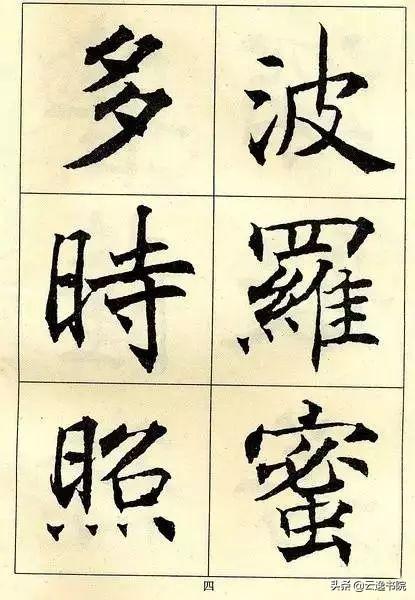 波羅蜜
多時照
四
头条 @云逸书院